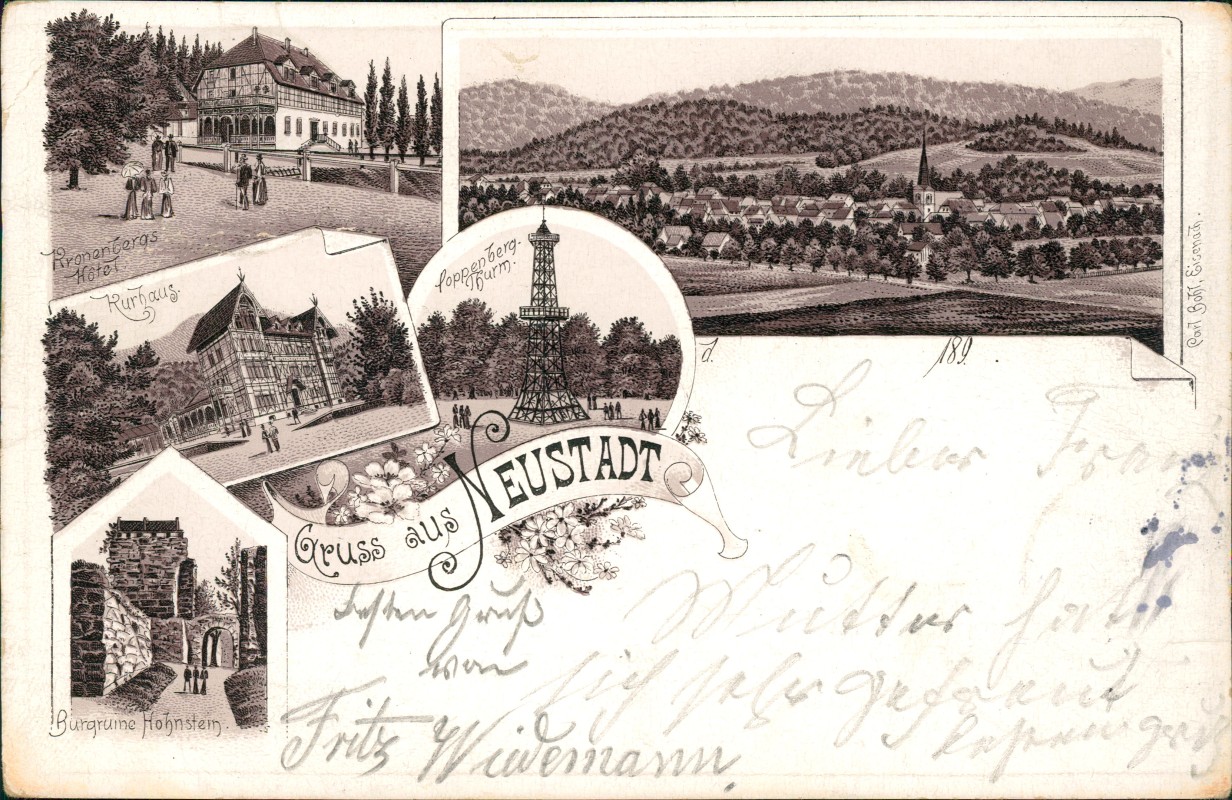 Kronenbergs
Hôtel
Kurhaus.
Poppenberg.
Thurm.
Burgruine Hohnstein.
Gruss aus NEUSTADT
Carl Bohl, Eisenach.
d. 189
Lieber
Mutter hatt
sich sehr gefreut
besten Gruß
von
Fritz Wiedemann